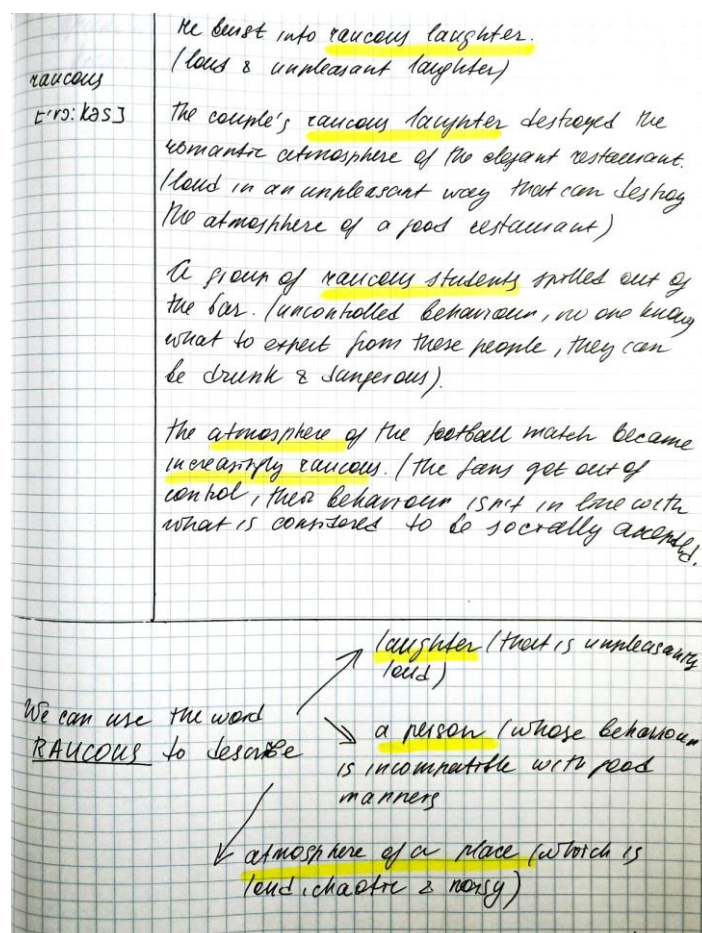 He burst into raucous laughter.
(loud & unpleasant laughter)
raucous
['rɔ:kəs]
The couple's raucous laughter destroyed the
romantic atmosphere of the elegant restaurant.
(loud in an unpleasant way that can destroy
the atmosphere of a good restaurant)
A group of raucous students spilled out of
the bar. (uncontrolled behaviour, no one knows
what to expect from these people, they can
be drunk & dangerous).
The atmosphere of the football match became
increasingly raucous. (the fans got out of
control, their behaviour isn't in line with
what is considered to be socially accepted.
laughter (that is unpleasantly
loud)
We can use the word
RAUCOUS to describe
a person (whose behaviour
is incompatible with good
manners
atmosphere of a place (which is
loud, chaotic & noisy)